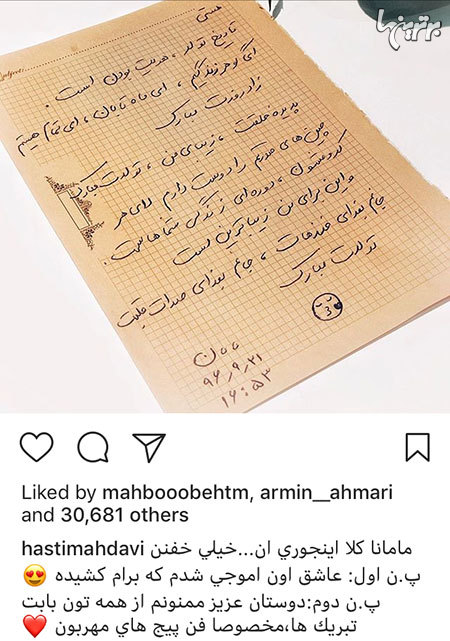 برترینها
هستی
تاریخ تولد، هویت بودن است.
ای گوهر زندگیم، ای ماه تابان، ای تمام هستیم
زادروزت مبارک
پدیده خلقت، زیبای من، تولدت مبارک
چین های صورتم را دوست دارم لای هر
کدومشون، دوره ای از زندگی شماهاست.
و این برای من زیباترین است
جانم بفدای خنده هات، جانم بفدای صدات قلبت
تولدت مبارک
مامان
۹۶٫۹٫۲۱
۱۶:۵۳
Liked by mahbooobehtm, armin__ahmari
and 30,681 others
hastimahdavi مامانا كلا اينجوري ان...خيلي خفنن
پ.ن اول: عاشق اون اموجي شدم كه برام كشيده 😍
پ.ن دوم:دوستان عزيز ممنونم از همه تون بابت
تبريك ها،مخصوصا فن پيج هاي مهربون ❤️